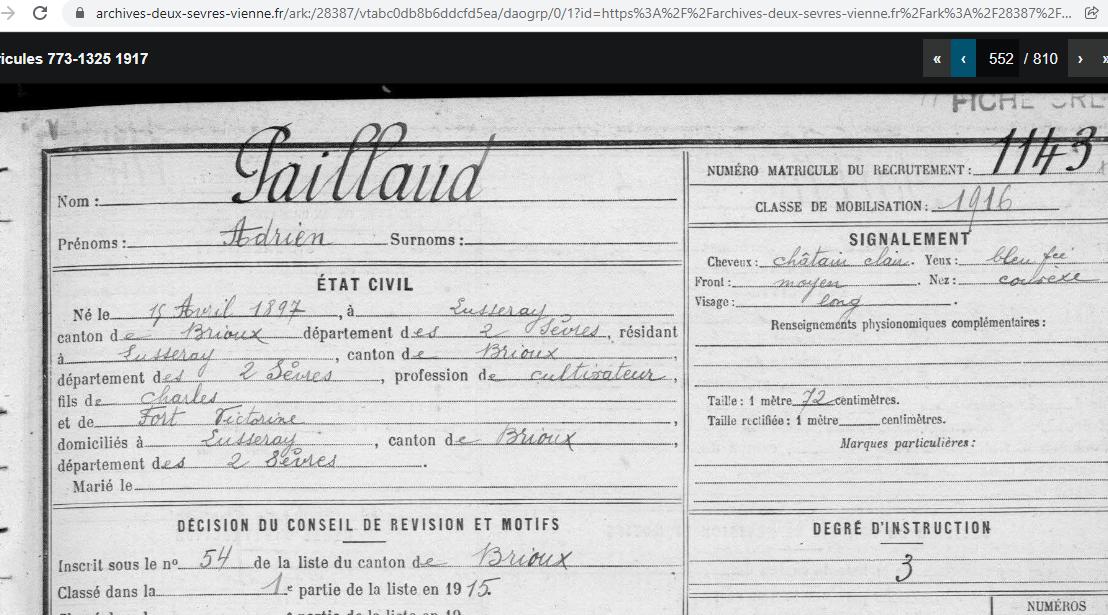 archives-deux-sevres-vienne.fr/ark:/28387/vtabc0db8b6ddcfd5ea/daogrp/0/1?id=https%3A%2F%2Farchives-deux-sevres-vienne.fr%2Fark%3A%2F28387%2F...
ricules 773-1325 1917
« ‹ 552 / 810 › »
FICHE
Nom : Paillaud
Prénoms : Adrien Surnoms :
ÉTAT CIVIL
Né le 15 Avril 1897, à Lusseray
canton de Brioux département des 2 Sèvres, résidant
à Lusseray, canton de Brioux,
département des 2 Sèvres, profession de cultivateur,
fils de Charles
et de Fort Victorine,
domiciliés à Lusseray, canton de Brioux,
département des 2 Sèvres.
Marié le
DÉCISION DU CONSEIL DE REVISION ET MOTIFS
Inscrit sous le no 54 de la liste du canton de Brioux
Classé dans la 1e partie de la liste en 1915.
NUMÉRO MATRICULE DU RECRUTEMENT : 1143
CLASSE DE MOBILISATION : 1916
SIGNALEMENT
Cheveux : châtain clair. Yeux : bleu
Front : moyen. Nez :
Visage : long.
Renseignements physionomiques complémentaires :
Taille : 1 mètre 72 centimètres.
Taille rectifiée : 1 mètre centimètres.
Marques particulières :
DEGRÉ D'INSTRUCTION
3
NUMÉROS